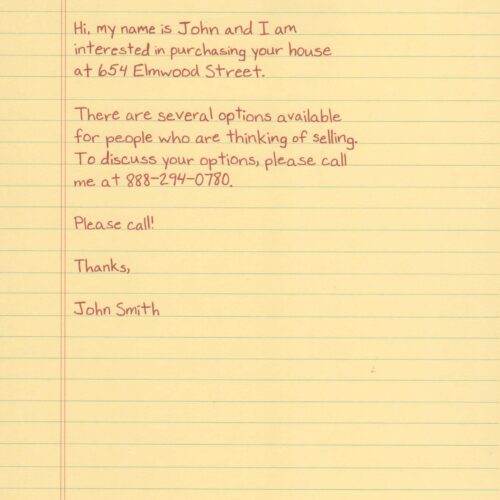 Hi, my name is John and I am
interested in purchasing your house
at 654 Elmwood Street.
There are several options available
for people who are thinking of selling.
To discuss your options, please call
me at 888-294-0780.
Please call!
Thanks,
John Smith